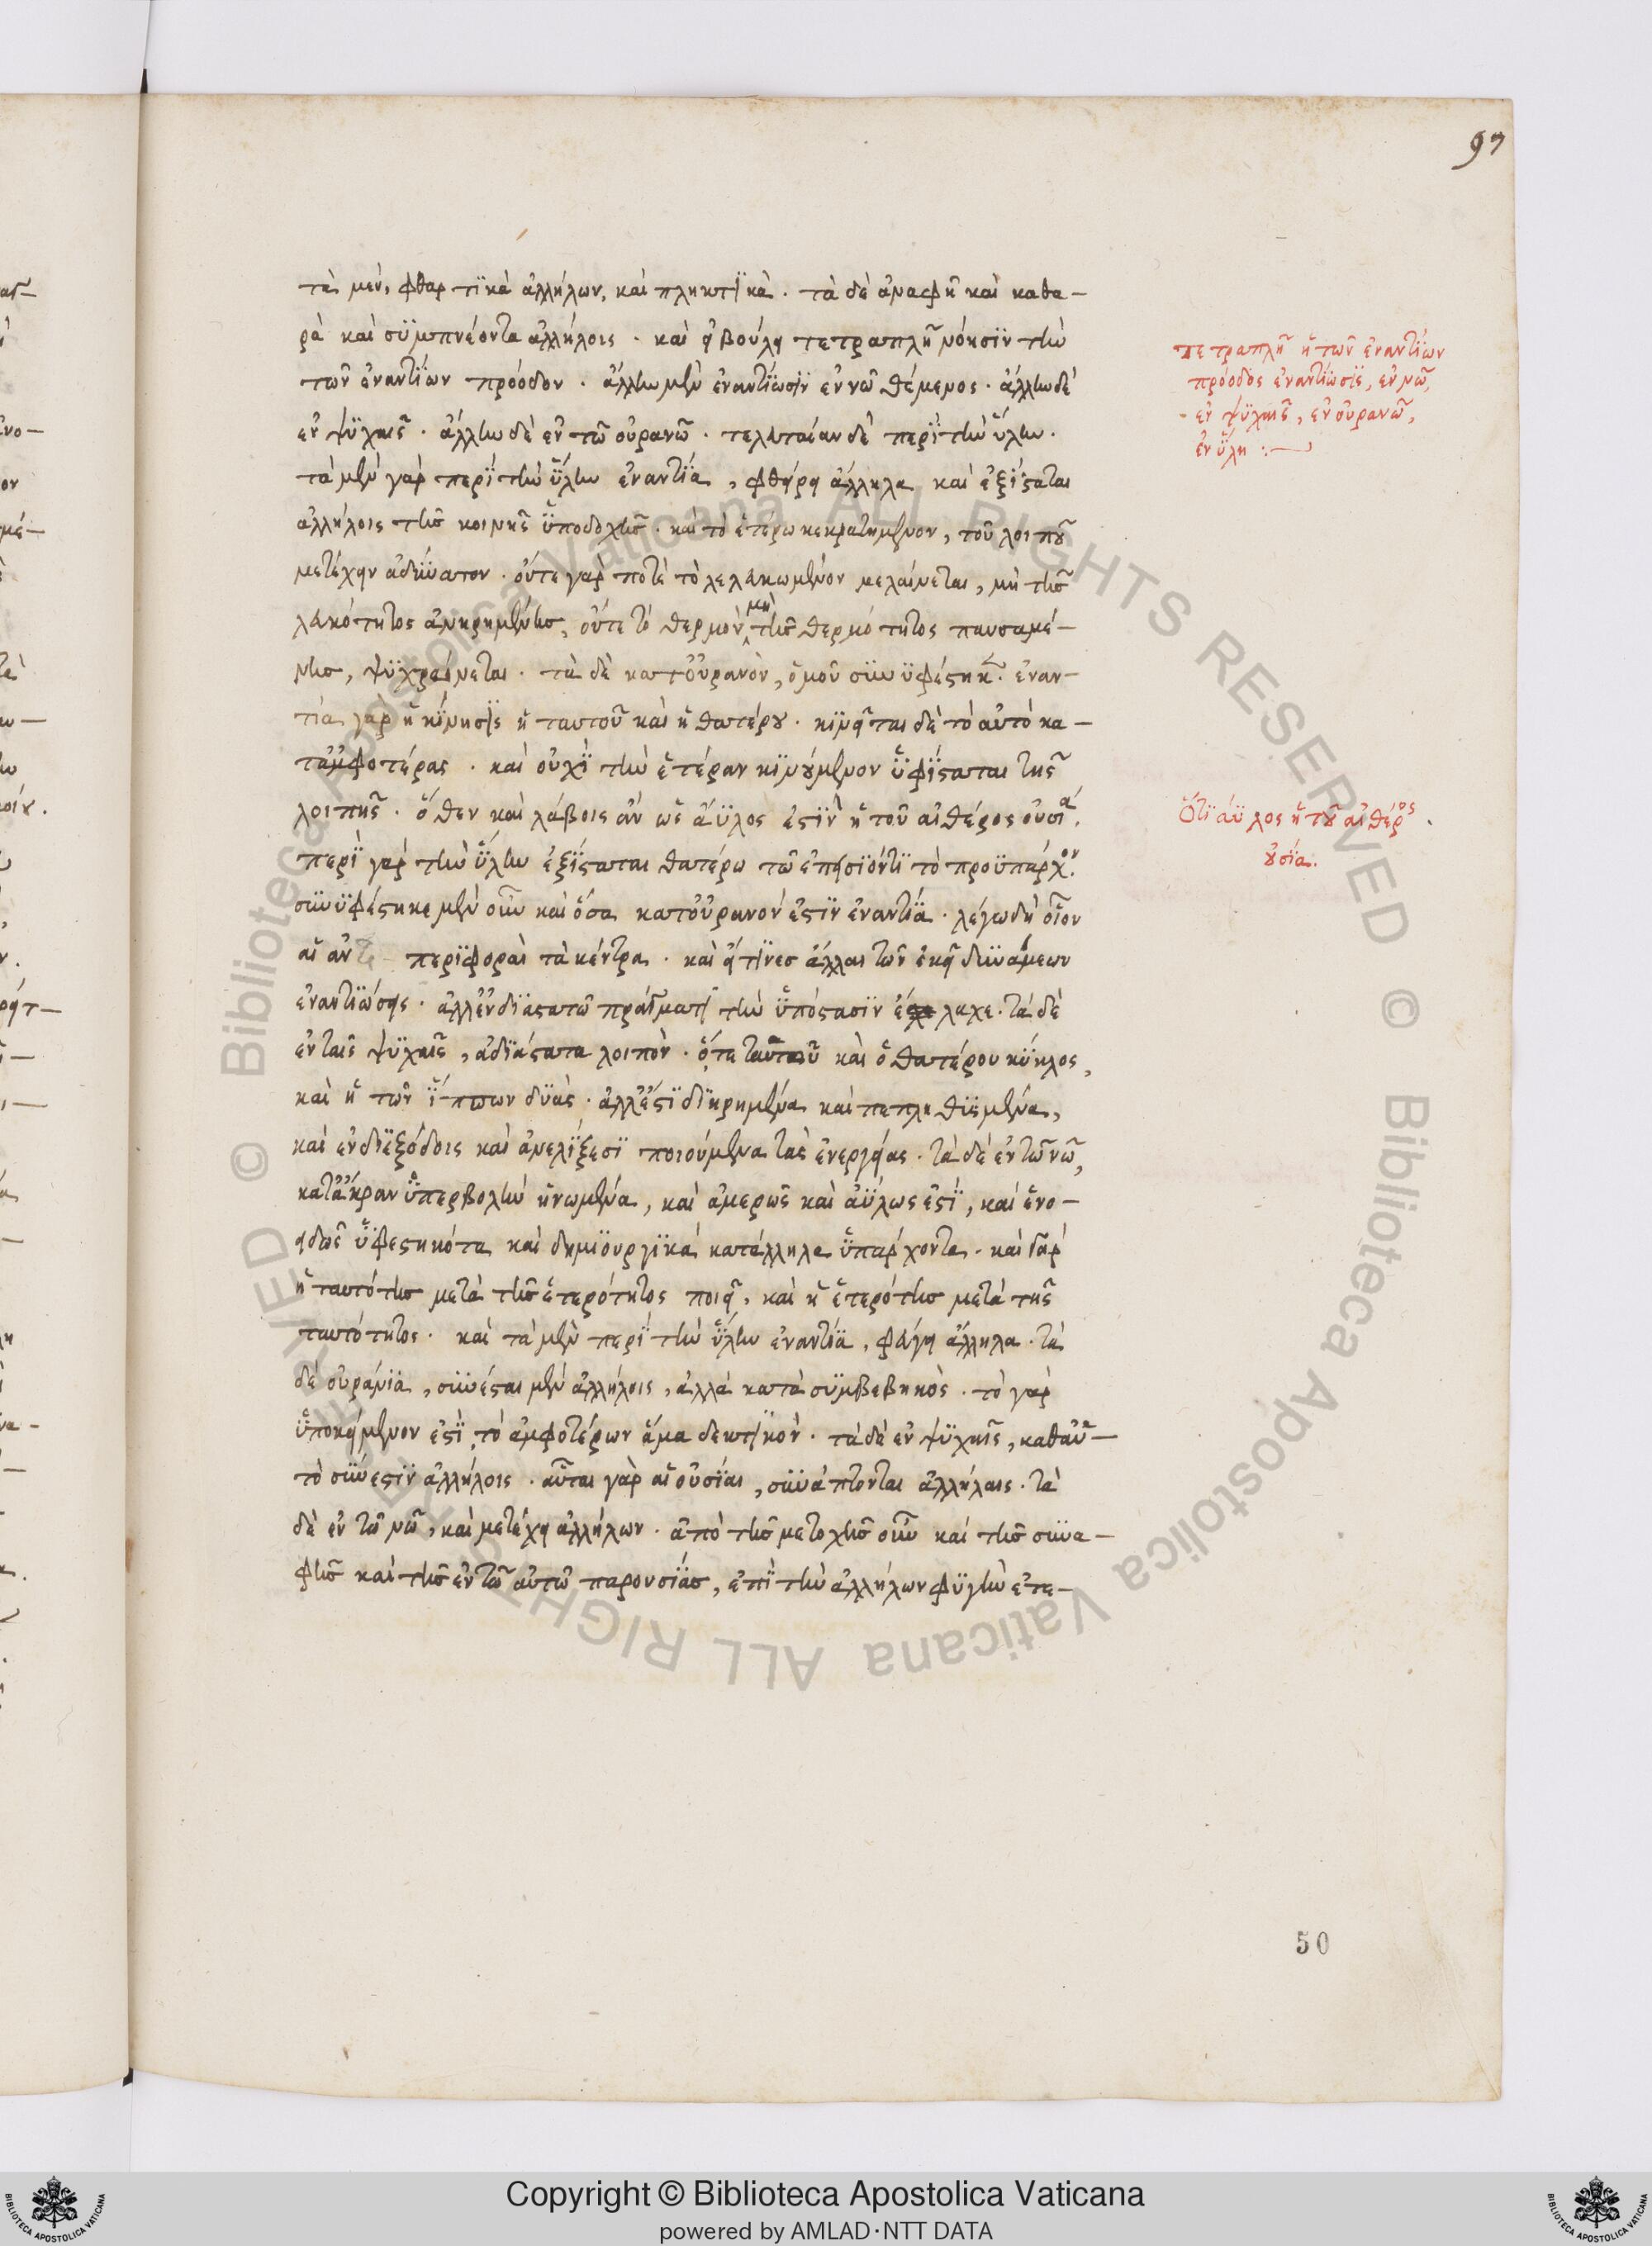 97
τὰ μὲν, φθαρτϊκὰ ἀλλήλων, καὶ πληκτϊκὰ. τὰ δὲ ἀναφῆ καὶ καθα-
ρὰ καὶ σϋμπνέοντα ἀλλήλοις. καὶ εἰ βούλει τετραπλῆ νόησϊν τὴν
τῶν ἐναντΐων πρόοδον. ἄλλην μὲν ἐναντΐωσϊν ἐν νῷ θέμενος. ἄλλην δὲ
ἐν ψϋχαῖς. ἄλλην δὲ ἐν τῶ οὐρανῶ. τελευταίαν δὲ περὶ τὴν ὕλην.
τὰ μὲν γὰρ περὶ τὴν ὕλην ἐναντΐα, φθείρει ἄλληλα καὶ ἐξίσταται
ἀλλήλοις τῆς κοινῆς ὑποδοχῆς. καὶ τὸ ἑτέρω κεκρατημένον, τοῦ λοιποῦ
μετέχειν ἀδύνατον. οὔτε γὰρ ποτὲ τὸ λελευκωμένον μελαίνεται, μὴ τῆς
λευκότητος ἀνηρημένης, οὔτε τὸ θερμὸν μὴ τῆς θερμότητος παυσαμέ-
νης, ψϋχραίνεται. τὰ δὲ κατοὐρανὸν, ὁμοῦ σϋνϋφέστηκε. ἐναν-
τία γὰρ ἡ κΐνησϊς ἡ ταυτοῦ καὶ ἡ θατέρου. κϊνεῖται δὲ τὸ αὐτὸ κα-
ταἀμφοτέρας. καὶ οὐχὶ τὴν ἑτέραν κϊνούμενον ὑφΐσταται τῆς
λοιπῆς. ὅθεν καὶ λάβοις ἂν ὡς ἄϋλος ἐστϊν ἡ τοῦ αἰθέρος οὐσία.
περὶ γὰρ τὴν ὕλην ἐξΐσταται θατέρω τῶ ἐπεισϊόντϊ τὸ προϋπάρχον.
σϋνϋφέστηκε μὲν οὖν καὶ ὅσα κατοὐρανόν ἐστϊν ἐναντΐα. λέγω δὴ οἷον
αἱ ἀντι περϊφοραὶ τὰ κέντρα. καὶ εἴ τϊνες ἄλλαι τῶν ἐκεῖ δϋνάμεων
ἐναντϊώσεις. ἀλλἐνδϊαστατῶ πράγματϊ τὴν ὑπόστασϊν ἔλαχε. τὰ δὲ
ἐν ταῖς ψϋχαῖς, ἀδϊάστατα λοιπὸν. ὅτε ταυτοῦ καὶ ὁ θατέρου κύκλος,
καὶ ἡ τῶν ἵππων δϋὰς. ἀλλἐστϊ δϊῃρημένα καὶ πεπληθϋσμένα,
καὶ ἐν δϊεξόδοις καὶ ἀνελΐξεσϊ ποιούμενα τὰς ἐνεργείας. τὰ δὲ ἐν τῶ νῶ,
κατἄκραν ὑπερβολὴν ἡνωμένα, καὶ ἀμερῶς καὶ ἀΰλως ἐστϊ, καὶ ἑνο-
ειδῶς ὑφεστηκότα καὶ δημϊουργϊκὰ κατάλληλα ὑπάρχοντα. καὶ γὰρ
ἡ ταυτότης μετὰ τῆς ἑτερότητος ποιεῖ, καὶ ἡ ἑτερότης μετὰ τῆς
ταυτότητος. καὶ τὰ μὲν περὶ τὴν ὕλην ἐναντΐα, φεύγει ἄλληλα. τὰ
δὲ οὐράνϊα, σϋνέσται μὲν ἀλλήλοις, ἀλλὰ κατὰ σϋμβεβηκὸς. τὸ γὰρ
ὑποκείμενον ἐστὶ, τὸ ἀμφοτέρων ἅμα δεκτϊκόν. τὰ δὲ ἐν ψϋχαῖς, καθαὑ-
τὸ σϋνεστϊν ἀλλήλοις. αὗται γὰρ αἱ οὐσΐαι, σϋνάπτονται ἀλλήλαις. τὰ
δὲ ἐν τῶ νῶ, καὶ μετέχει ἀλλήλων. ἀπὸ τῆς μετοχῆς οὖν καὶ τῆς σϋνα-
φῆς καὶ τῆς ἐν τῶ αὐτῶ παρουσΐας, ἐπὶ τὴν ἀλλήλων φϋγὴν ἐτε-
τετραπλῆ ἡ τῶν ἐναντΐων
πρόοδος ἐναντΐωσϊς, ἐν νῶ,
ἐν ψϋχαῖς, ἐν οὐρανῶ,
ἐν ὕλη:
Ὅτϊ ἄϋλος ἡ τοῦ αἰθέρος
οὐσΐα.
50
Copyright © Biblioteca Apostolica Vaticana
powered by AMLAD·NTT DATA